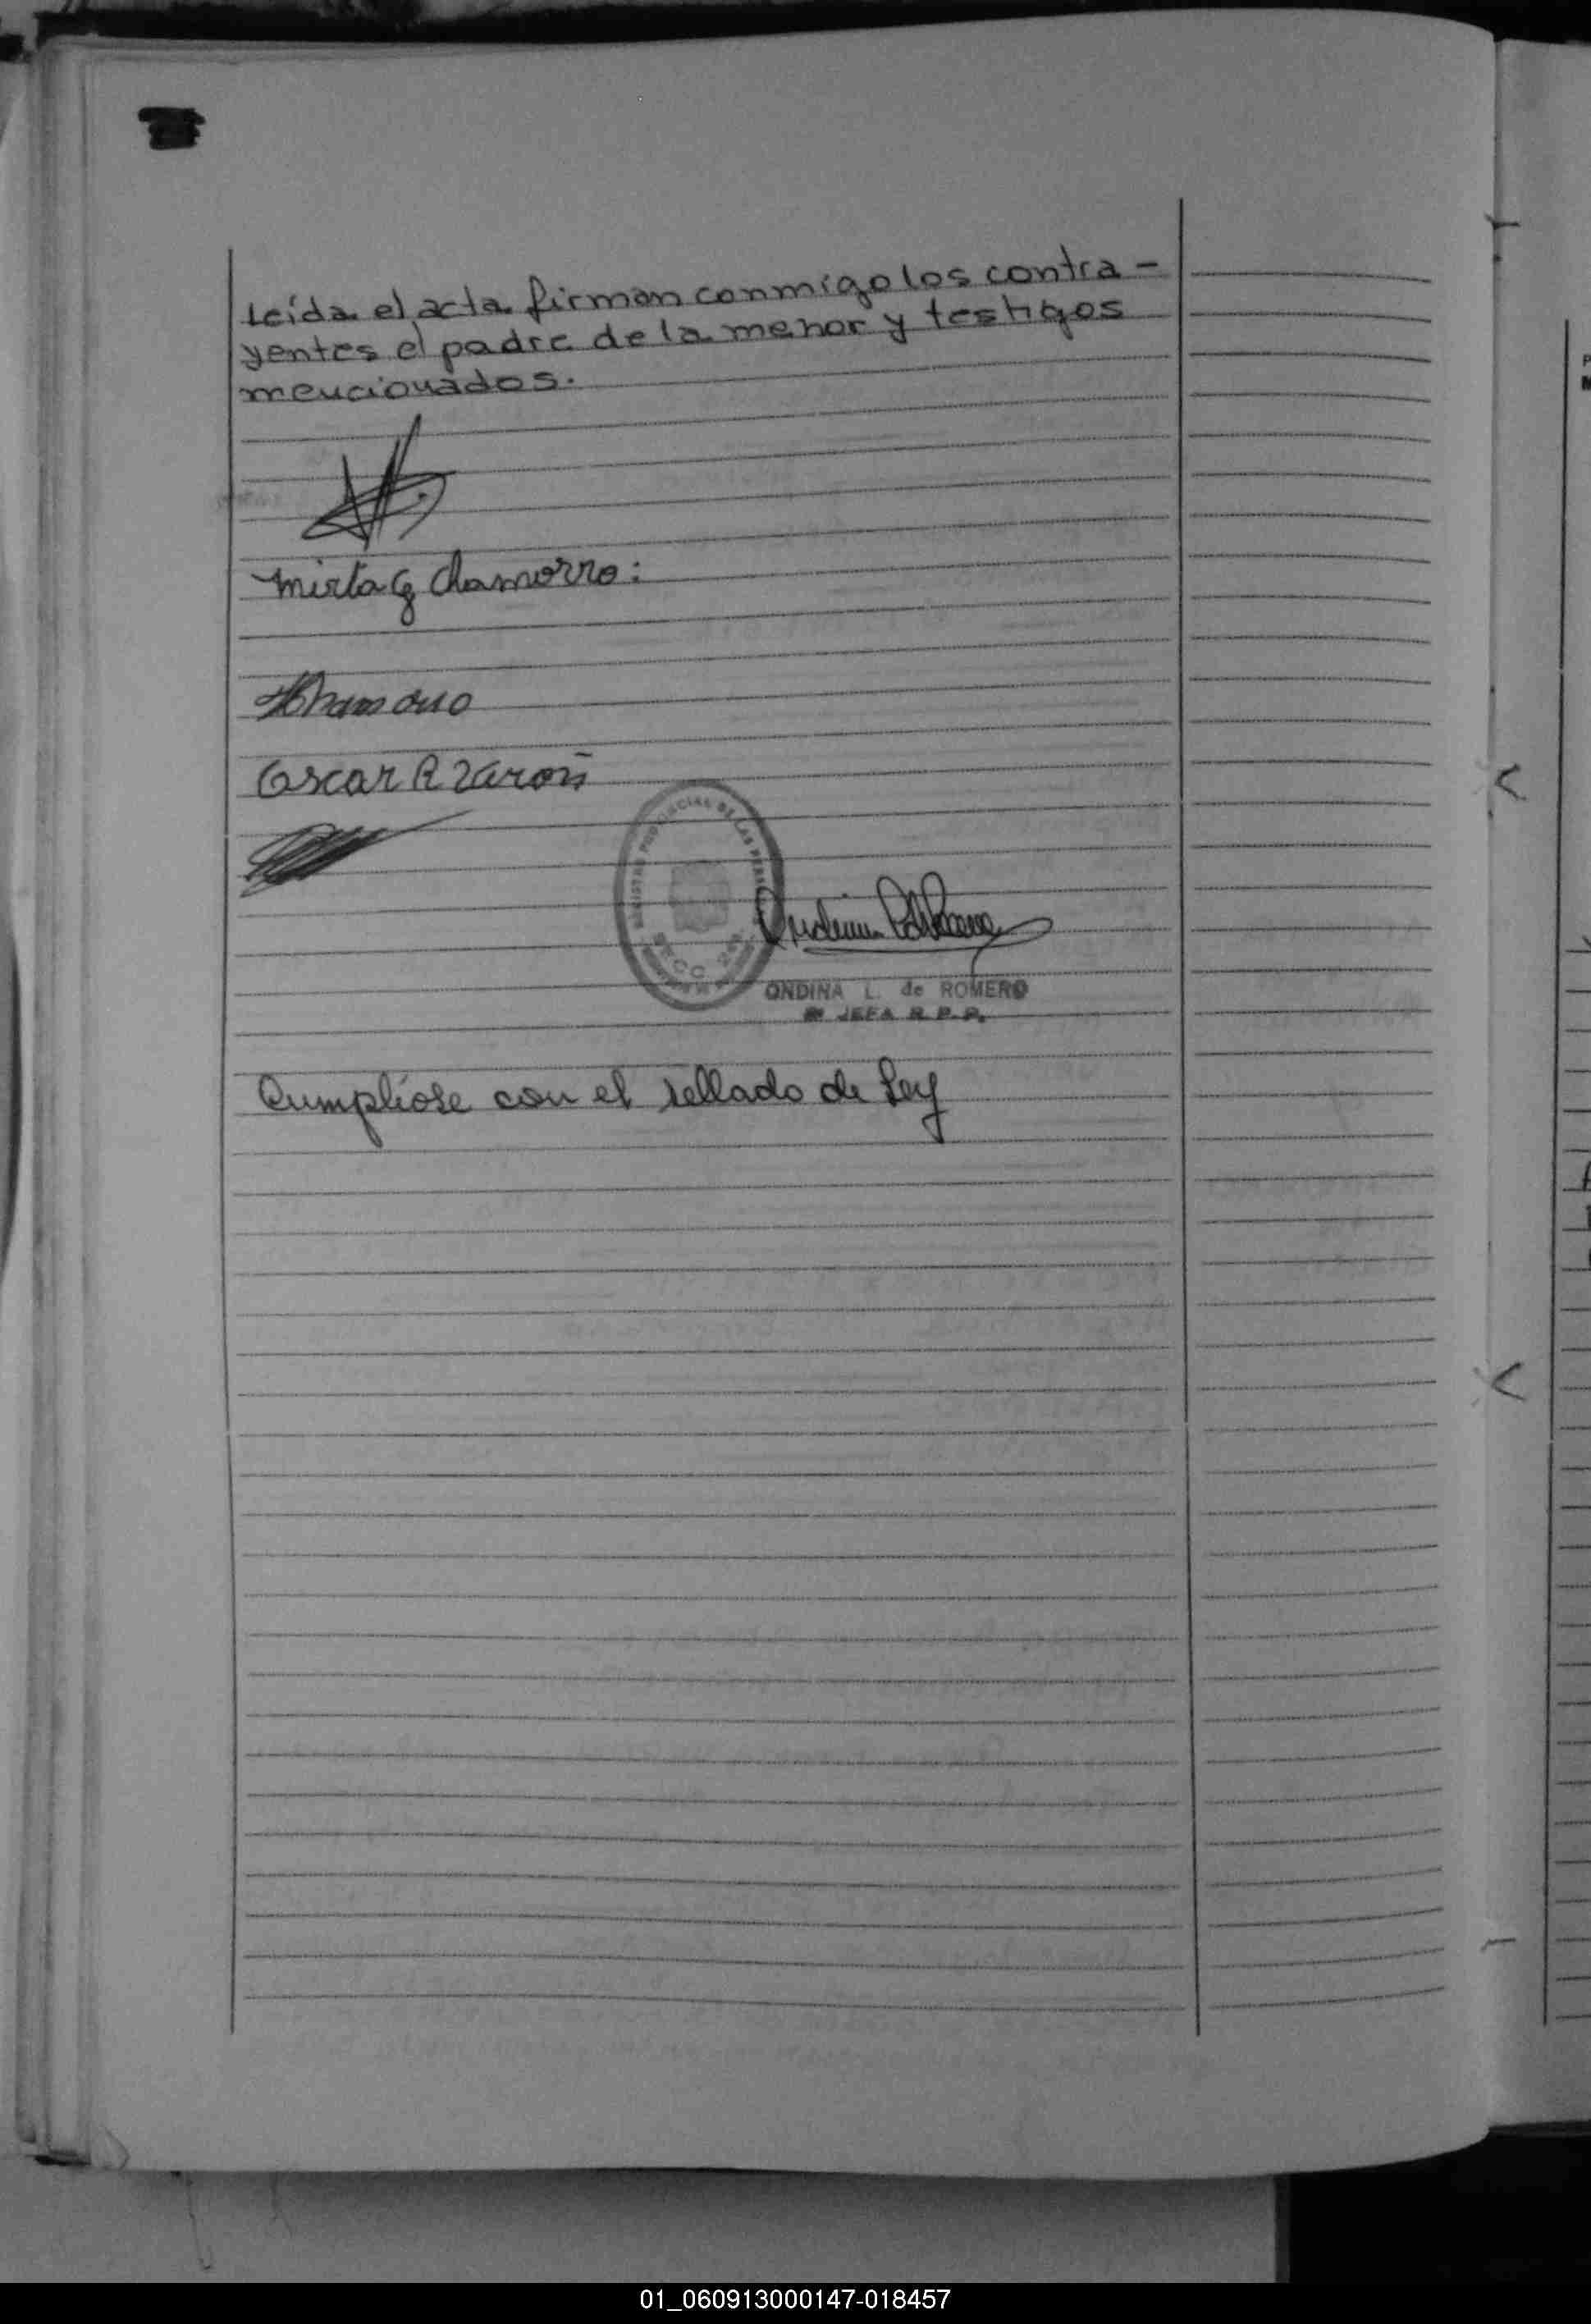 Leída el acta firman conmigo los contra-
yentes el padre de la menor y testigos
mencionados.
Mirta G Chamorro:
Chamorro
Oscar R
REGISTRO PROVINCIAL DE LAS
SECC
ONDINA L. de ROMERO
JEFA R. P. P.
Cumplióse con el sellado de Ley
01_060913000147-018457